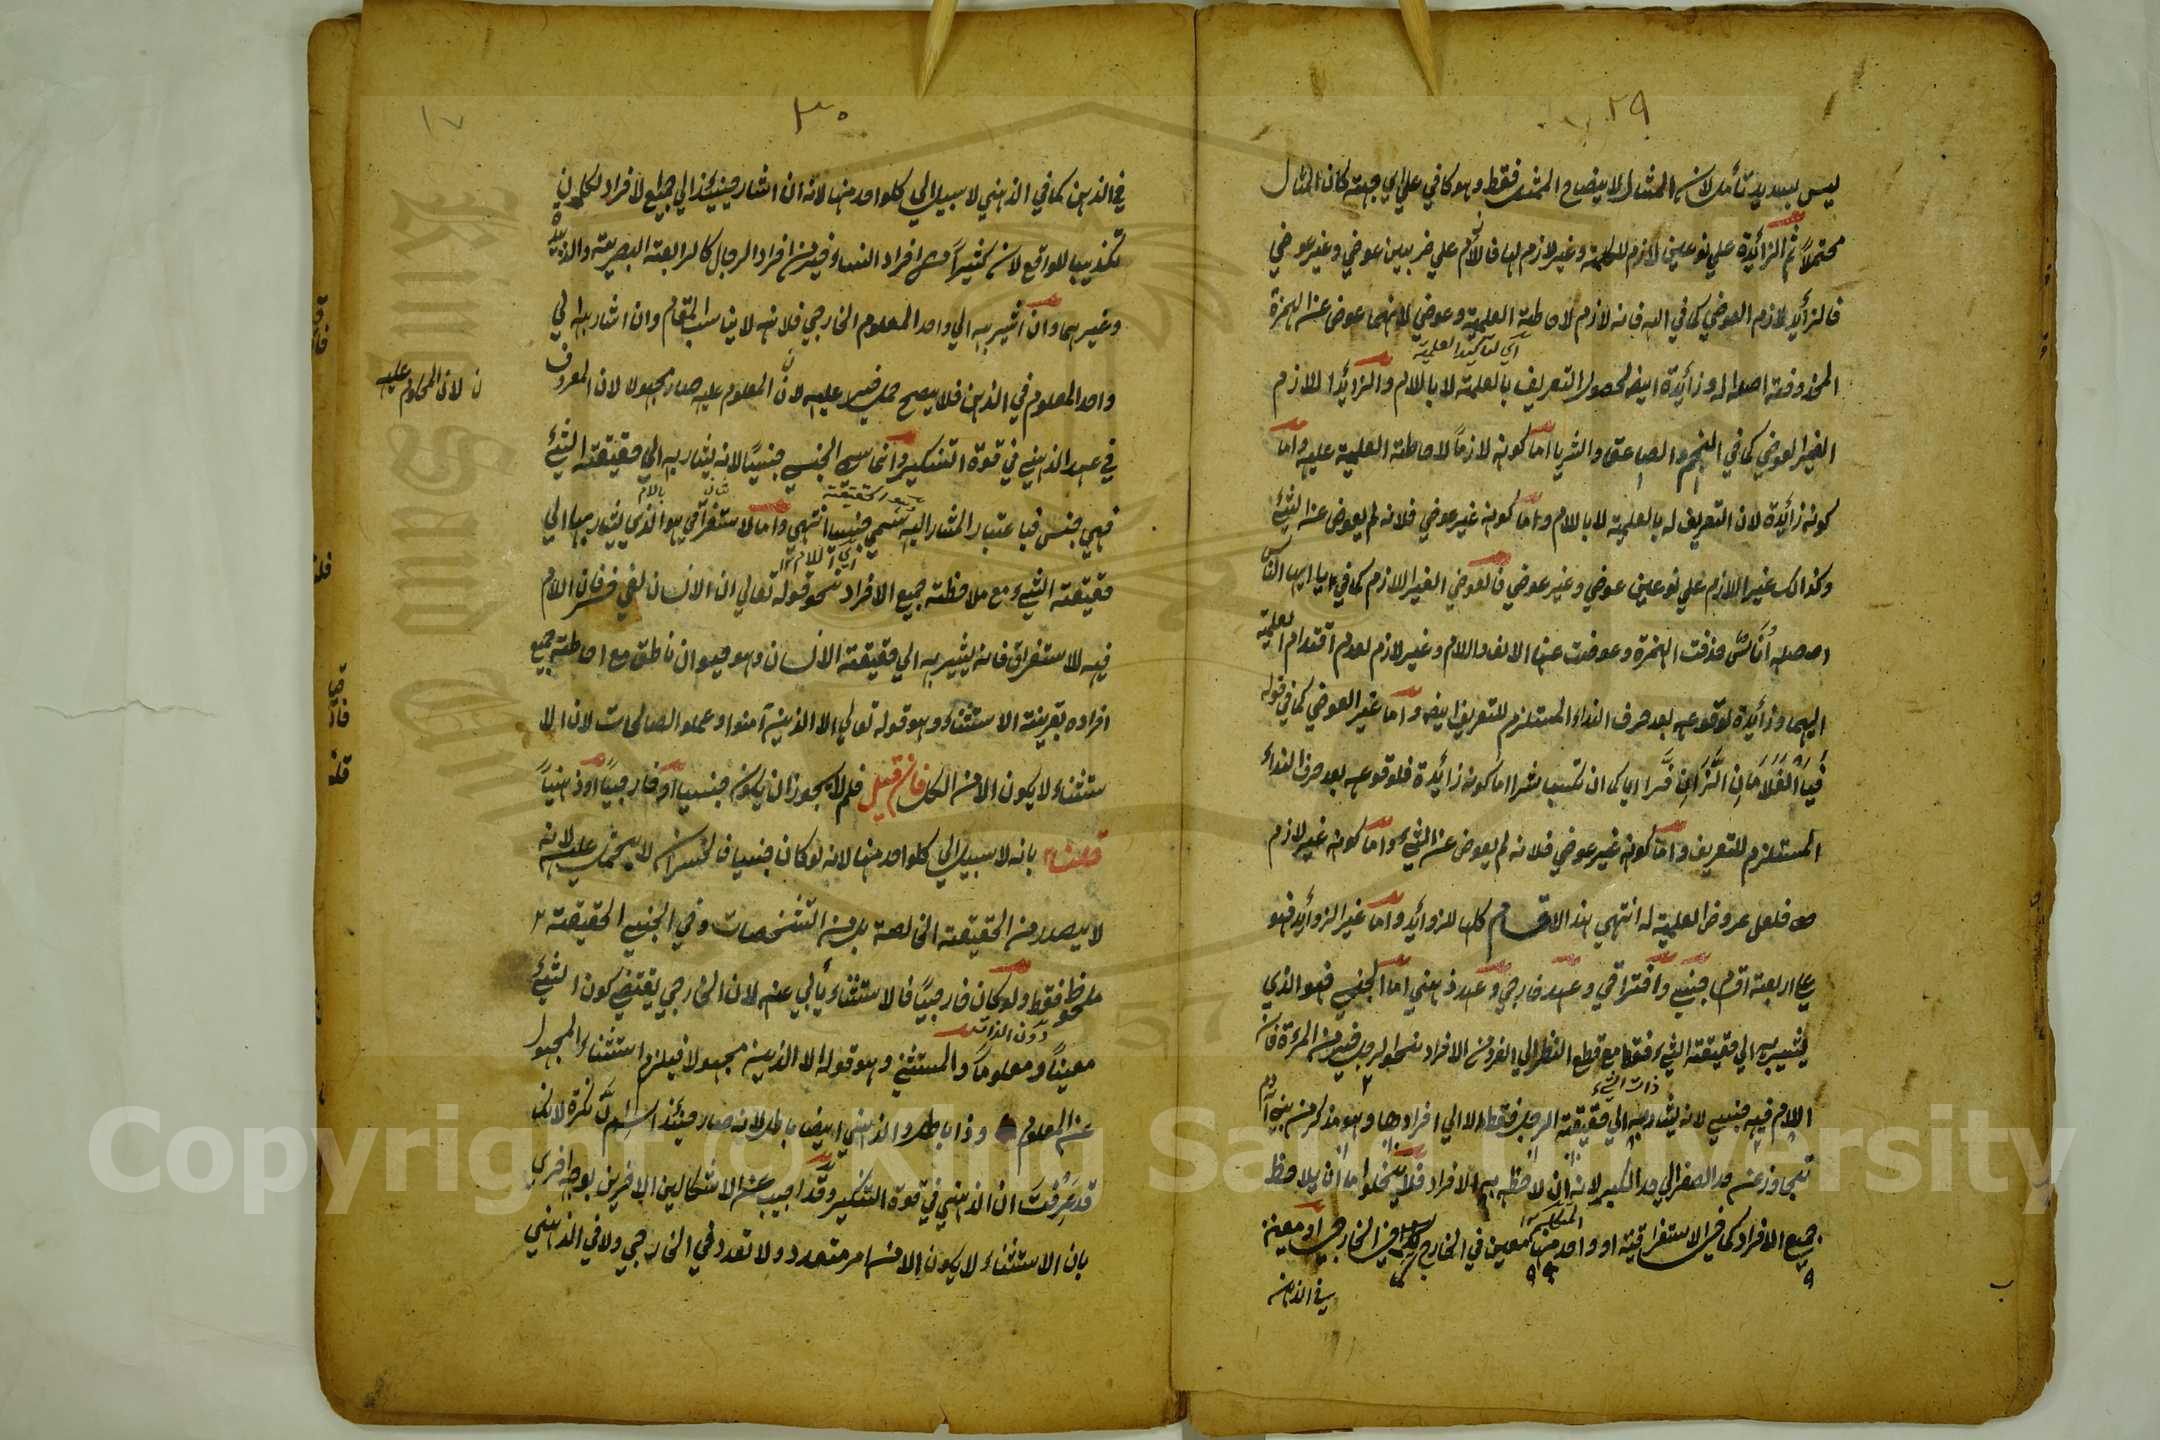 ٢٩
ليس بسديد تأمل لان المثال لايضاح الممثل فقط وهو كافي علي اي جهة كان المثال
محتملاً ثم الزائدة علي نوعين لازم للكلمة وغير لازم لها فاللازم علي ضربين عوضي وغير عوضي
فالزائد لازم العوضي كما في الله فانه لازم لاحاطة العلمية وعوضي لانهما عوض عن الهمزة
اي لتاكيد العلمية
المحذوفة اصله اله وزائدة ايضا لحصول التعريف بالعلمية لا باللام والزائد اللازم
الغير العوضي كما في النجم والصاعق والثريا اما كونه لازماً لاحاطة العلمية عليه واما
كونه زائدة لان التعريف له بالعلمية لا باللام واما كونه غير عوضي فلانه لم يعوض عن الشئ
وكذالك غير اللازم علي نوعين عوضي وغير عوضي فالعوضي الغير اللازم كما في يا ايها الناس
اصله أناس حذفت الهمزة وعوضت عنها الالف واللام وغير لازم لعدم اقتدام العلمية
اليهما وزائدة لوقوعه بعد حرف النداء المستلزم للتعريف ايضا واما غير العوضي كما في قوله
فيا الغلامان اللذان فرا اياكما ان تكسبا شرا اما كونه زائدة فلوقوعه بعد حرف النداء
المستلزم للتعريف واما كونه غير عوضي فلانه لم يعوض عن الشئ واما كونه غير لازم
فلعل عروض العلمية له انتهي هذا الاقسام كلها للزوائد واما غير الزوائد فهو
علي اربعة اقسام جنسي واستغراقي وعهد خارجي وعهد ذهني اما الجنسي فهو الذي
يشير به الي حقيقة الشئ فقط مع قطع النظر الي الفرد من الافراد نحو الرجل خير من المرءة فان
ذات الشئ
اللام فيه جنسي لانه يشار به الي حقيقة الرجل فقط لا الي افرادها وهو مذكر من بني آدم
تجاوز عن حد الصغر الي حد الكبير لانه ان لاحظ به الافراد فلا يخلوا اما ان يلاحظ
جميع الافراد كما في الاستغراقية او واحد منها معين في الخارج كما في الخارجي او معين
في الذهن
٣٠
١٧
في الذهن كما في الذهني لا سبيل الي كل واحد منها لانه ان اشار حينئذ الي جميع الافراد لكلون
تكذيبا للواقع لان كثيراً من افراد النساء خير من افراد الرجال كالرابعة البصرية والذبيه
وغيرهما وان اشير به الي واحد المعلوم الخارجي فلانه لا يناسب المقام وان اشار به الي
واحد المعلوم في الذهن فلا يصح حمل خير عليه لان المعلوم عليه صار مجهولا لان المعروف
ن لان المحكوم عليه
في عهد الذهني في قوة التنكير وانما سمي الجنسي جنسيًا لانه يشار به الي حقيقة الشئ
فهي جنس فباعتبار المشار اليه سمي جنسيا انتهي واما الاستغراقي هو الذي يشار بها الي
حقيقة الشئ مع ملاحظة جميع الافراد نحو قوله تعالي ان الانسان لفي خسر فان اللام
فيه للاستغراق فانه يشير به الي حقيقة الانسان وهو حيوان ناطق مع احاطة جميع
افراده بقرينة الاستثناء وهو قوله تعالي الا الذين آمنوا وعملو الصالحات لان الا
ستثناء لا يكون الا من الكل فان قيل فلم لا يجوز ان يكون جنسيا او خارجيًا او ذهنيًا
قلنا بانه لا سبيل الي كل واحد منها لانه لو كان جنسيا فالخسران لا يحمل عليه لانه
لا يصدر من الحقيقة الخالصة بل من التشخصات وفي الجنسي الحقيقة
ملحوظ فقط ولو كان خارجيًا فالاستثناء يأبي عنه لان الخارجي يقتضي كون الشئ
معينًا ومعلوماً والمستثني وهو قوله الا الذين مجهولا فيلزم استثناء المجهول
عن المعلوم وذا باطل والذهني ايضا باطل لانه صار حينئذ اسم ان نكرة لانك
قد عرفت ان الذهني في قوة التنكير وقد اجيب عن الاشكالين الاخرين بوجه اخري
بان الاستثناء لا يكون الا من امر متعدد ولا تعدد في الخارجي ولا في الذهني
Copyright © King Saud University